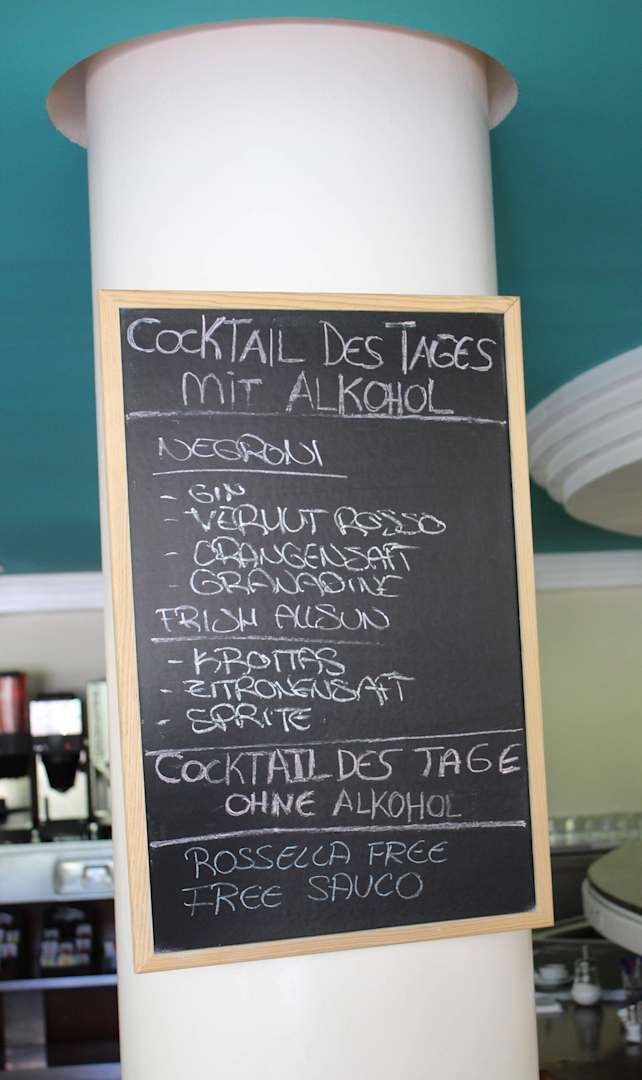 COCKTAIL DES TAGES
MIT ALKOHOL
NEGRONI
- GIN
- VERMUT ROSSO
- ORANGENSAFT
- GRANADINE
FRISH ALLSUN
- KROTTAS
- ZITRONENSAFT
- SPRITE
COCKTAIL DES TAGE
OHNE ALKOHOL
ROSSELLA FREE
FREE SAUCO